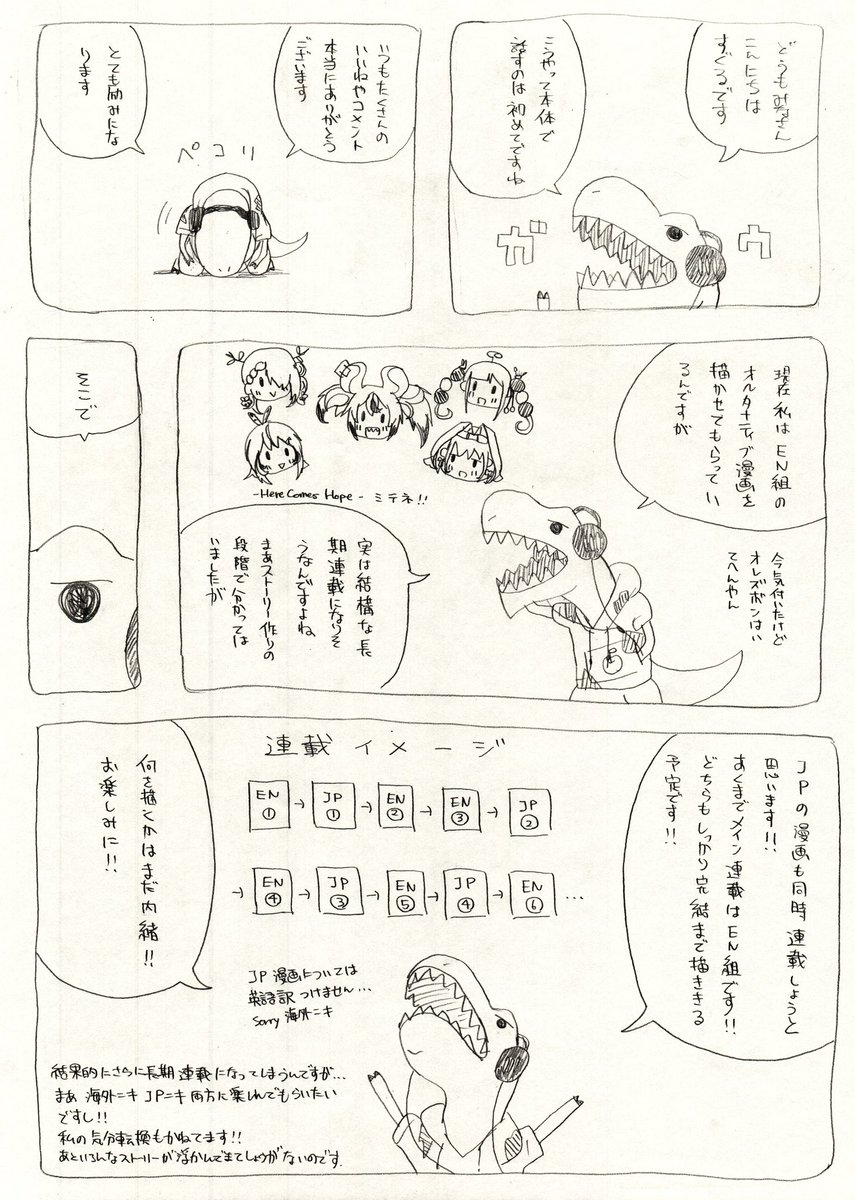 どうもみなさん
こんにちは
すぐるです
こうやって本体で
話すのは初めてですね
ガ
ウ
いつもたくさんの
いいねやコメント
本当にありがとう
ございます
ペコリ
とても励みにな
ります
現在私はEN組の
オルタナティブ漫画を
描かせてもらってい
るんですが
今気付いたけど
オレズボンはい
てへんやん
-Here Comes Hope- ミテネ!!
実は結構な長
期連載になりそ
うなんですよね
まあストーリー作りの
段階で分かっては
いましたが
そこで
JPの漫画も同時連載しようと
思います!!
あくまでメイン連載はEN組です!!
どちらもしっかり完結まで描ききる
予定です!!
連載イメージ
EN① → JP① → EN② → EN③ → JP②
→ EN④ → JP③ → EN⑤ → JP④ → EN⑥ …
何を描くかはまだ内緒!!
お楽しみに!!
JP漫画については
英語訳つけません…
Sorry 海外ニキ
結果的にさらに長期連載になってしまうんですが…
まあ 海外ニキ JPニキ 両方に楽しんでもらいたい
ですし!!
私の気分転換もかねてます!!
あといろんなストーリーが浮かんできてしょうがないのです.